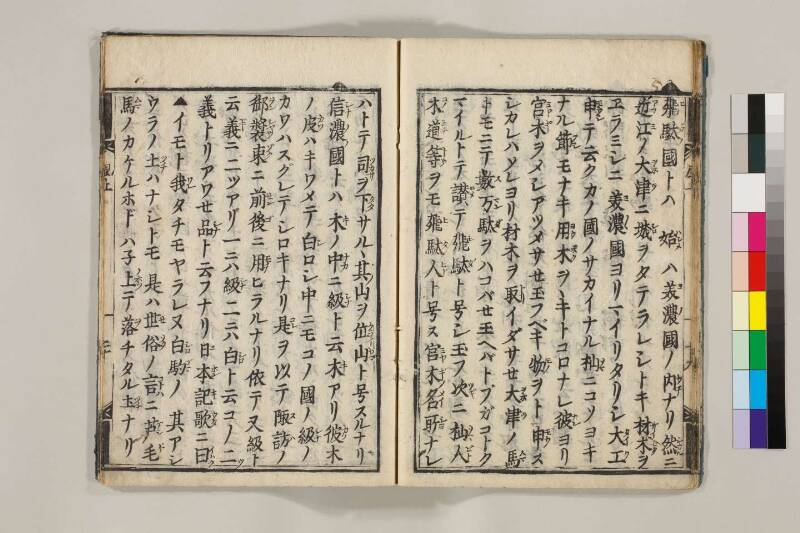 飛駄國トハ 始ハ美濃國ノ内ナリ然ニ
近江ノ大津ニ城ヲタテラレシトキ材木ヲ
ヱラミシニ美濃國ヨリマイリタリシ大工
申テ云クカノ國ノサカイナル杣ニコソヨキ
ナル節モナキ用木ヲヽキトコロナレ彼ヨリ
宮木ヲメシアツメサせ玉フベキ物ヲト申ス
シカレハソレヨリ材木ヲ取イダサせ大津ノ馬
トモニテ數万駄ヲハコバせ玉ヘバトブガコトク
マイルトテ讃テ飛駄ト号シ玉フ次ニ杣人
木道等ヲモ飛駄人ト号ス宮木名所ナレ
ハトテ司ヲ下サルヽ其山ヲ位山ト号スルナリ
信濃國トハ木ノ中ニ級ト云木アリ彼木
ノ皮ハキワメテ白ロシ中ニモコノ國ノ級ノ
カワハスグレテシロキナリ是ヲ以テ陬訪ノ
御裝束ニ前後ニ用ヒラルナリ依テ又級ト
云義ニ二ツアリ一ニハ級二ニハ白ト云コノ二
義トリアワせ品ト云フナリ日本記歌ニ曰
▲イモト我タチモヤラレヌ白駒ノ 其アシ
ウラノ土ハナシトモ 是ハ世俗ノ言ニ芦毛
馬ノカケルホドハ子上テ落チタル玉ナリ